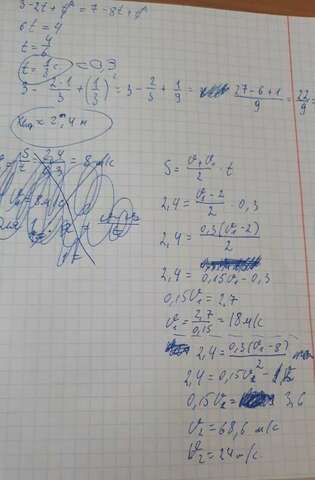 3-2t+t²=7-8t+t²
6t=4
t=4/6
t=1/3 c. = 0,3
3 - 2·1/3 + (1/3)² = 3 - 2/3 + 1/9 = 27-6+1/9 = 22/9 =
= 2,4 м
S/t = 2,4/0,3 = 8 м/с
= 8 м/с
S = v+v₀/2 · t
2,4 = v₁-2/2 · 0,3
2,4 = 0,3(v₁-2)/2
2,4 = 0,15v₁ - 0,3
0,15v₁ = 2,7
v₁ = 2,7/0,15 = 18 м/с
2,4 = 0,3(v₂-8)/2
2,4 = 0,15v₂ -
0,15v₂ = 3,6
v₂ = 68,6 м/с
v₂ = 24 м/с.